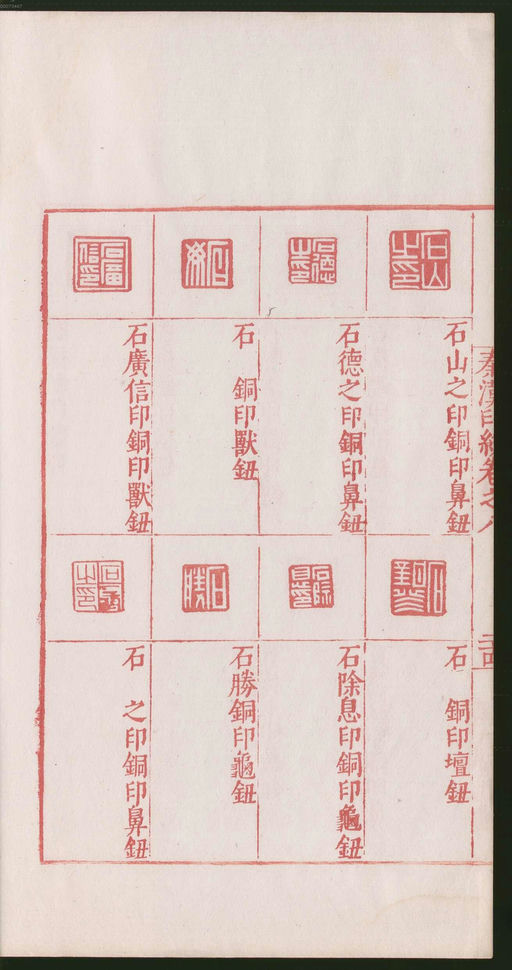 秦漢印統卷之八
石山之印銅印鼻鈕
石德之印銅印鼻鈕
石　銅印獸鈕
石廣信印銅印獸鈕
石　銅印壇鈕
石除息印銅印龜鈕
石勝銅印龜鈕
石　之印銅印鼻鈕